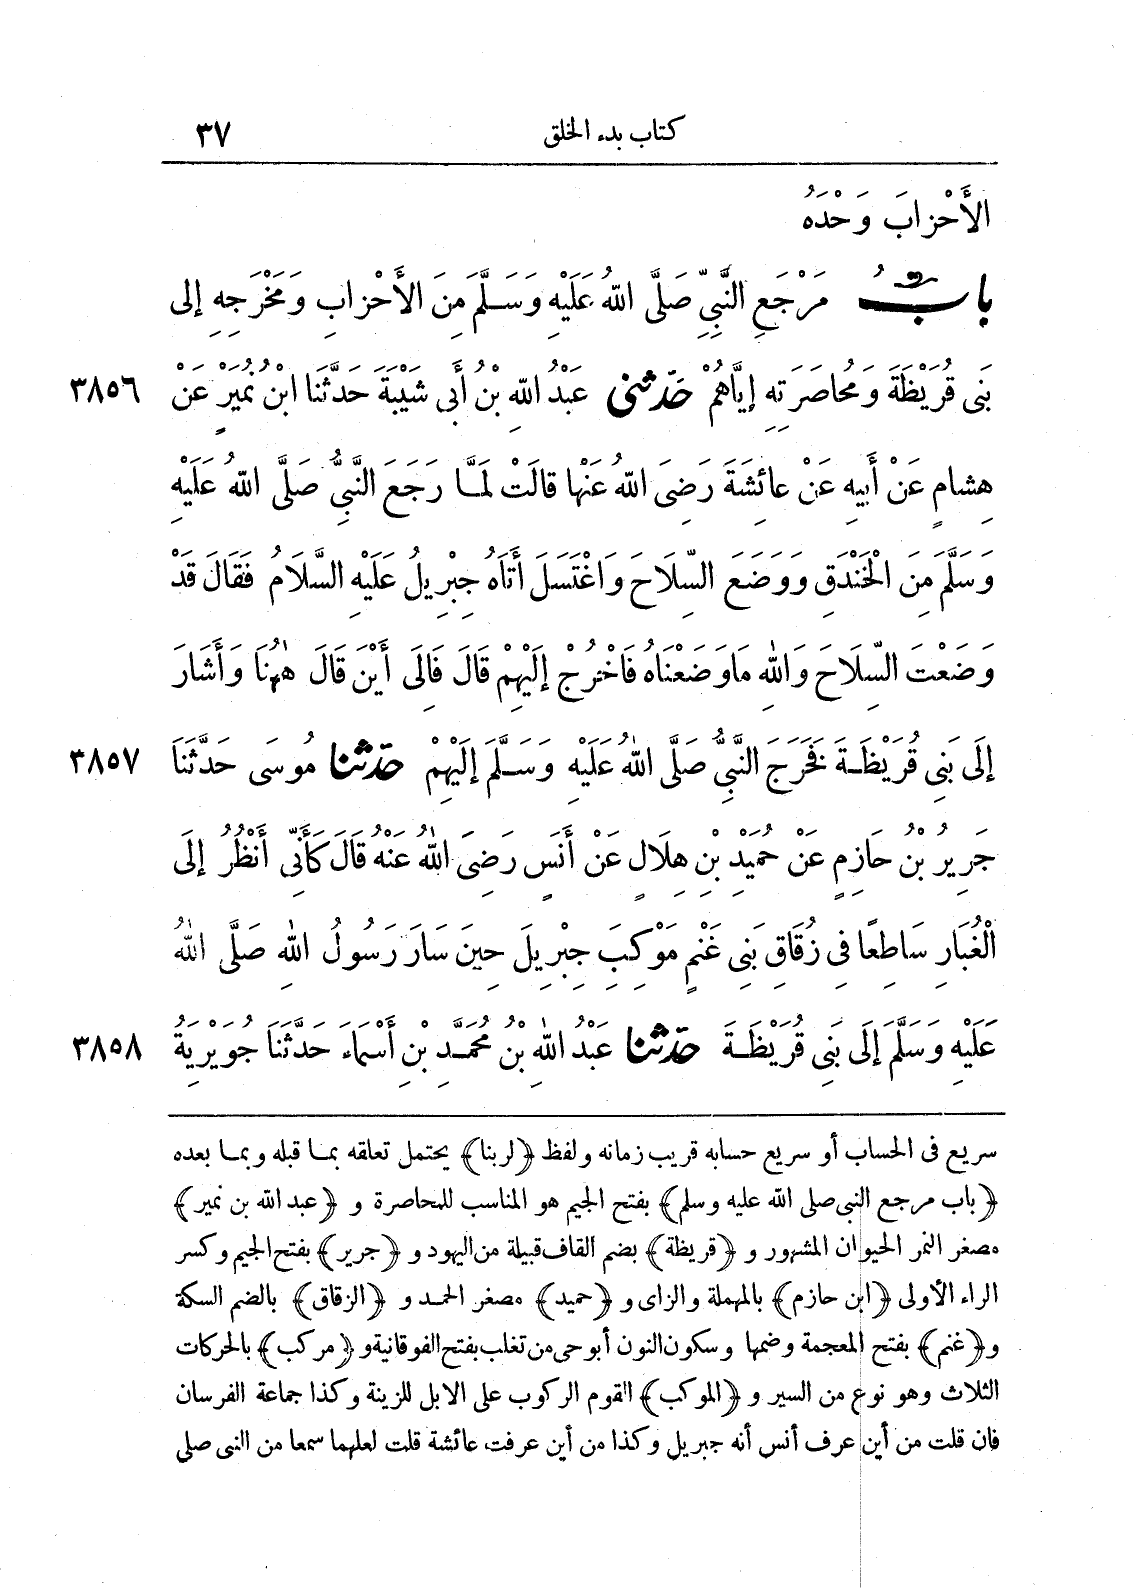 كتاب بدء الخلق ٣٧
الأَحْزابَ وَحْدَهُ
بابُ مَرْجَعِ النَّبِيِّ صَلَّى اللهُ عَلَيْهِ وَسَلَّمَ مِنَ الأَحْزابِ وَمَخْرَجِهِ إلى
بَنِى قُرَيْظَةَ وَمُحاصَرَتِهِ إيَّاهُمْ حَدَّثَنِى عَبْدُ اللهِ بْنُ أَبِى شَيْبَةَ حَدَّثَنا ابْنُ نُمَيْرٍ عَنْ ٣٨٥٦
هِشامٍ عَنْ أَبِيهِ عَنْ عائِشَةَ رَضِىَ اللهُ عَنْها قالَتْ لَمَّا رَجَعَ النَّبِيُّ صَلَّى اللهُ عَلَيْهِ
وَسَلَّمَ مِنَ الْخَنْدَقِ وَوَضَعَ السِّلَاحَ وَاغْتَسَلَ أَتَاهُ جِبْرِيلُ عَلَيْهِ السَّلَامُ فَقَالَ قَدْ
وَضَعْتَ السِّلَاحَ وَاللهِ مَا وَضَعْنَاهُ فَاخْرُجْ إِلَيْهِمْ قَالَ فَإِلَى أَيْنَ قَالَ هٰهُنَا وَأَشَارَ
إِلَى بَنِى قُرَيْظَةَ فَخَرَجَ النَّبِيُّ صَلَّى اللهُ عَلَيْهِ وَسَلَّمَ إِلَيْهِمْ حَدَّثَنَا مُوسَى حَدَّثَنَا ٣٨٥٧
جَرِيرُ بْنُ حَازِمٍ عَنْ حُمَيْدِ بْنِ هِلَالٍ عَنْ أَنَسٍ رَضِىَ اللهُ عَنْهُ قَالَ كَأَنِّى أَنْظُرُ إِلَى
الْغُبَارِ سَاطِعًا فِى زُقَاقِ بَنِى غَنْمٍ مَوْكِبَ جِبْرِيلَ حِينَ سَارَ رَسُولُ اللهِ صَلَّى اللهُ
عَلَيْهِ وَسَلَّمَ إِلَى بَنِى قُرَيْظَةَ حَدَّثَنَا عَبْدُ اللهِ بْنُ مُحَمَّدِ بْنِ أَسْمَاءَ حَدَّثَنَا جُوَيْرِيَةُ ٣٨٥٨
سريع فى الحساب أو سريع حسابه قريب زمانه ولفظ ﴿لربنا﴾ يحتمل تعلقه بما قبله وبما بعده
﴿باب مرجع النبى صلى الله عليه وسلم﴾ بفتح الجيم هو المناسب للمحاصرة و ﴿عبد الله بن نمير﴾
مصغر النمر الحيوان المشهور و ﴿قريظة﴾ بضم القاف قبيلة من اليهود و ﴿جرير﴾ بفتح الجيم وكسر
الراء الأولى ﴿ابن حازم﴾ بالمهملة والزاى و ﴿حميد﴾ مصغر الحمد و ﴿الزقاق﴾ بالضم السكة
و﴿غنم﴾ بفتح المعجمة وضمها وسكون النون أبو حى من تغلب بفتح الفوقانية و ﴿مركب﴾ بالحركات
الثلاث وهو نوع من السير و ﴿الموكب﴾ القوم الركوب على الابل للزينة وكذا جماعة الفرسان
فان قلت من أين عرف أنس أنه جبريل وكذا من أين عرفت عائشة قلت لعلهما سمعا من النبى صلى